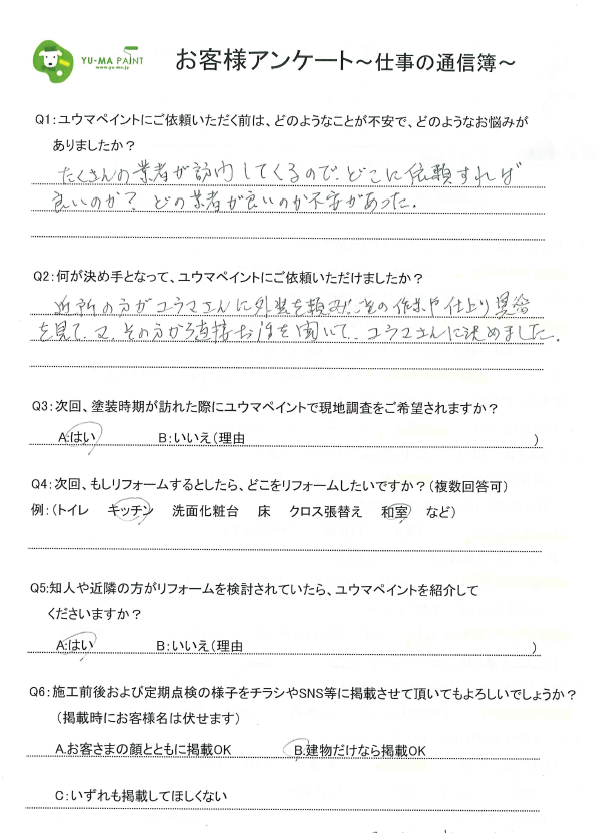 YU-MA PAINT
www.yu-ma.jp
お客様アンケート～仕事の通信簿～
Q1:ユウマペイントにご依頼いただく前は、どのようなことが不安で、どのようなお悩みが
ありましたか？
たくさんの業者が訪問してくるので、どこに依頼すれば
良いのか？ どの業者が良いのか不安があった.
Q2:何が決め手となって、ユウマペイントにご依頼いただけましたか？
近所の方がユウマさんに外装を頼み、その作業や仕上り具合
を見て、又、その方から直接お話を聞いて、ユウマさんに決めました.
Q3:次回、塗装時期が訪れた際にユウマペイントで現地調査をご希望されますか？
A:はい B:いいえ(理由 )
Q4:次回、もしリフォームするとしたら、どこをリフォームしたいですか？(複数回答可)
例:(トイレ キッチン 洗面化粧台 床 クロス張替え 和室 など)
Q5:知人や近隣の方がリフォームを検討されていたら、ユウマペイントを紹介して
くださいますか？
A:はい B:いいえ(理由 )
Q6:施工前後および定期点検の様子をチラシやSNS等に掲載させて頂いてもよろしいでしょうか？
(掲載時にお客様名は伏せます)
A.お客さまの顔とともに掲載OK B.建物だけなら掲載OK
C:いずれも掲載してほしくない